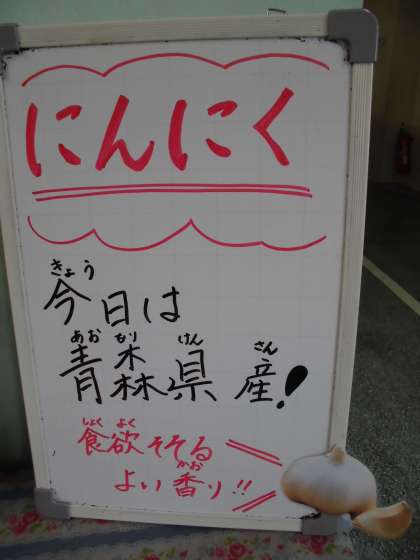 にんにく
きょう
今日は
あお もり けん さん
青森県産!
しょく よく
食欲そそる
かお
よい香り!!